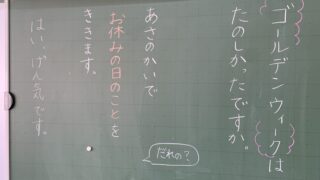 ゴールデンウィークは
たのしかったですか。
あさのかいで
お休みの日のことを
ききます。
はい、げん気です。
だれの？